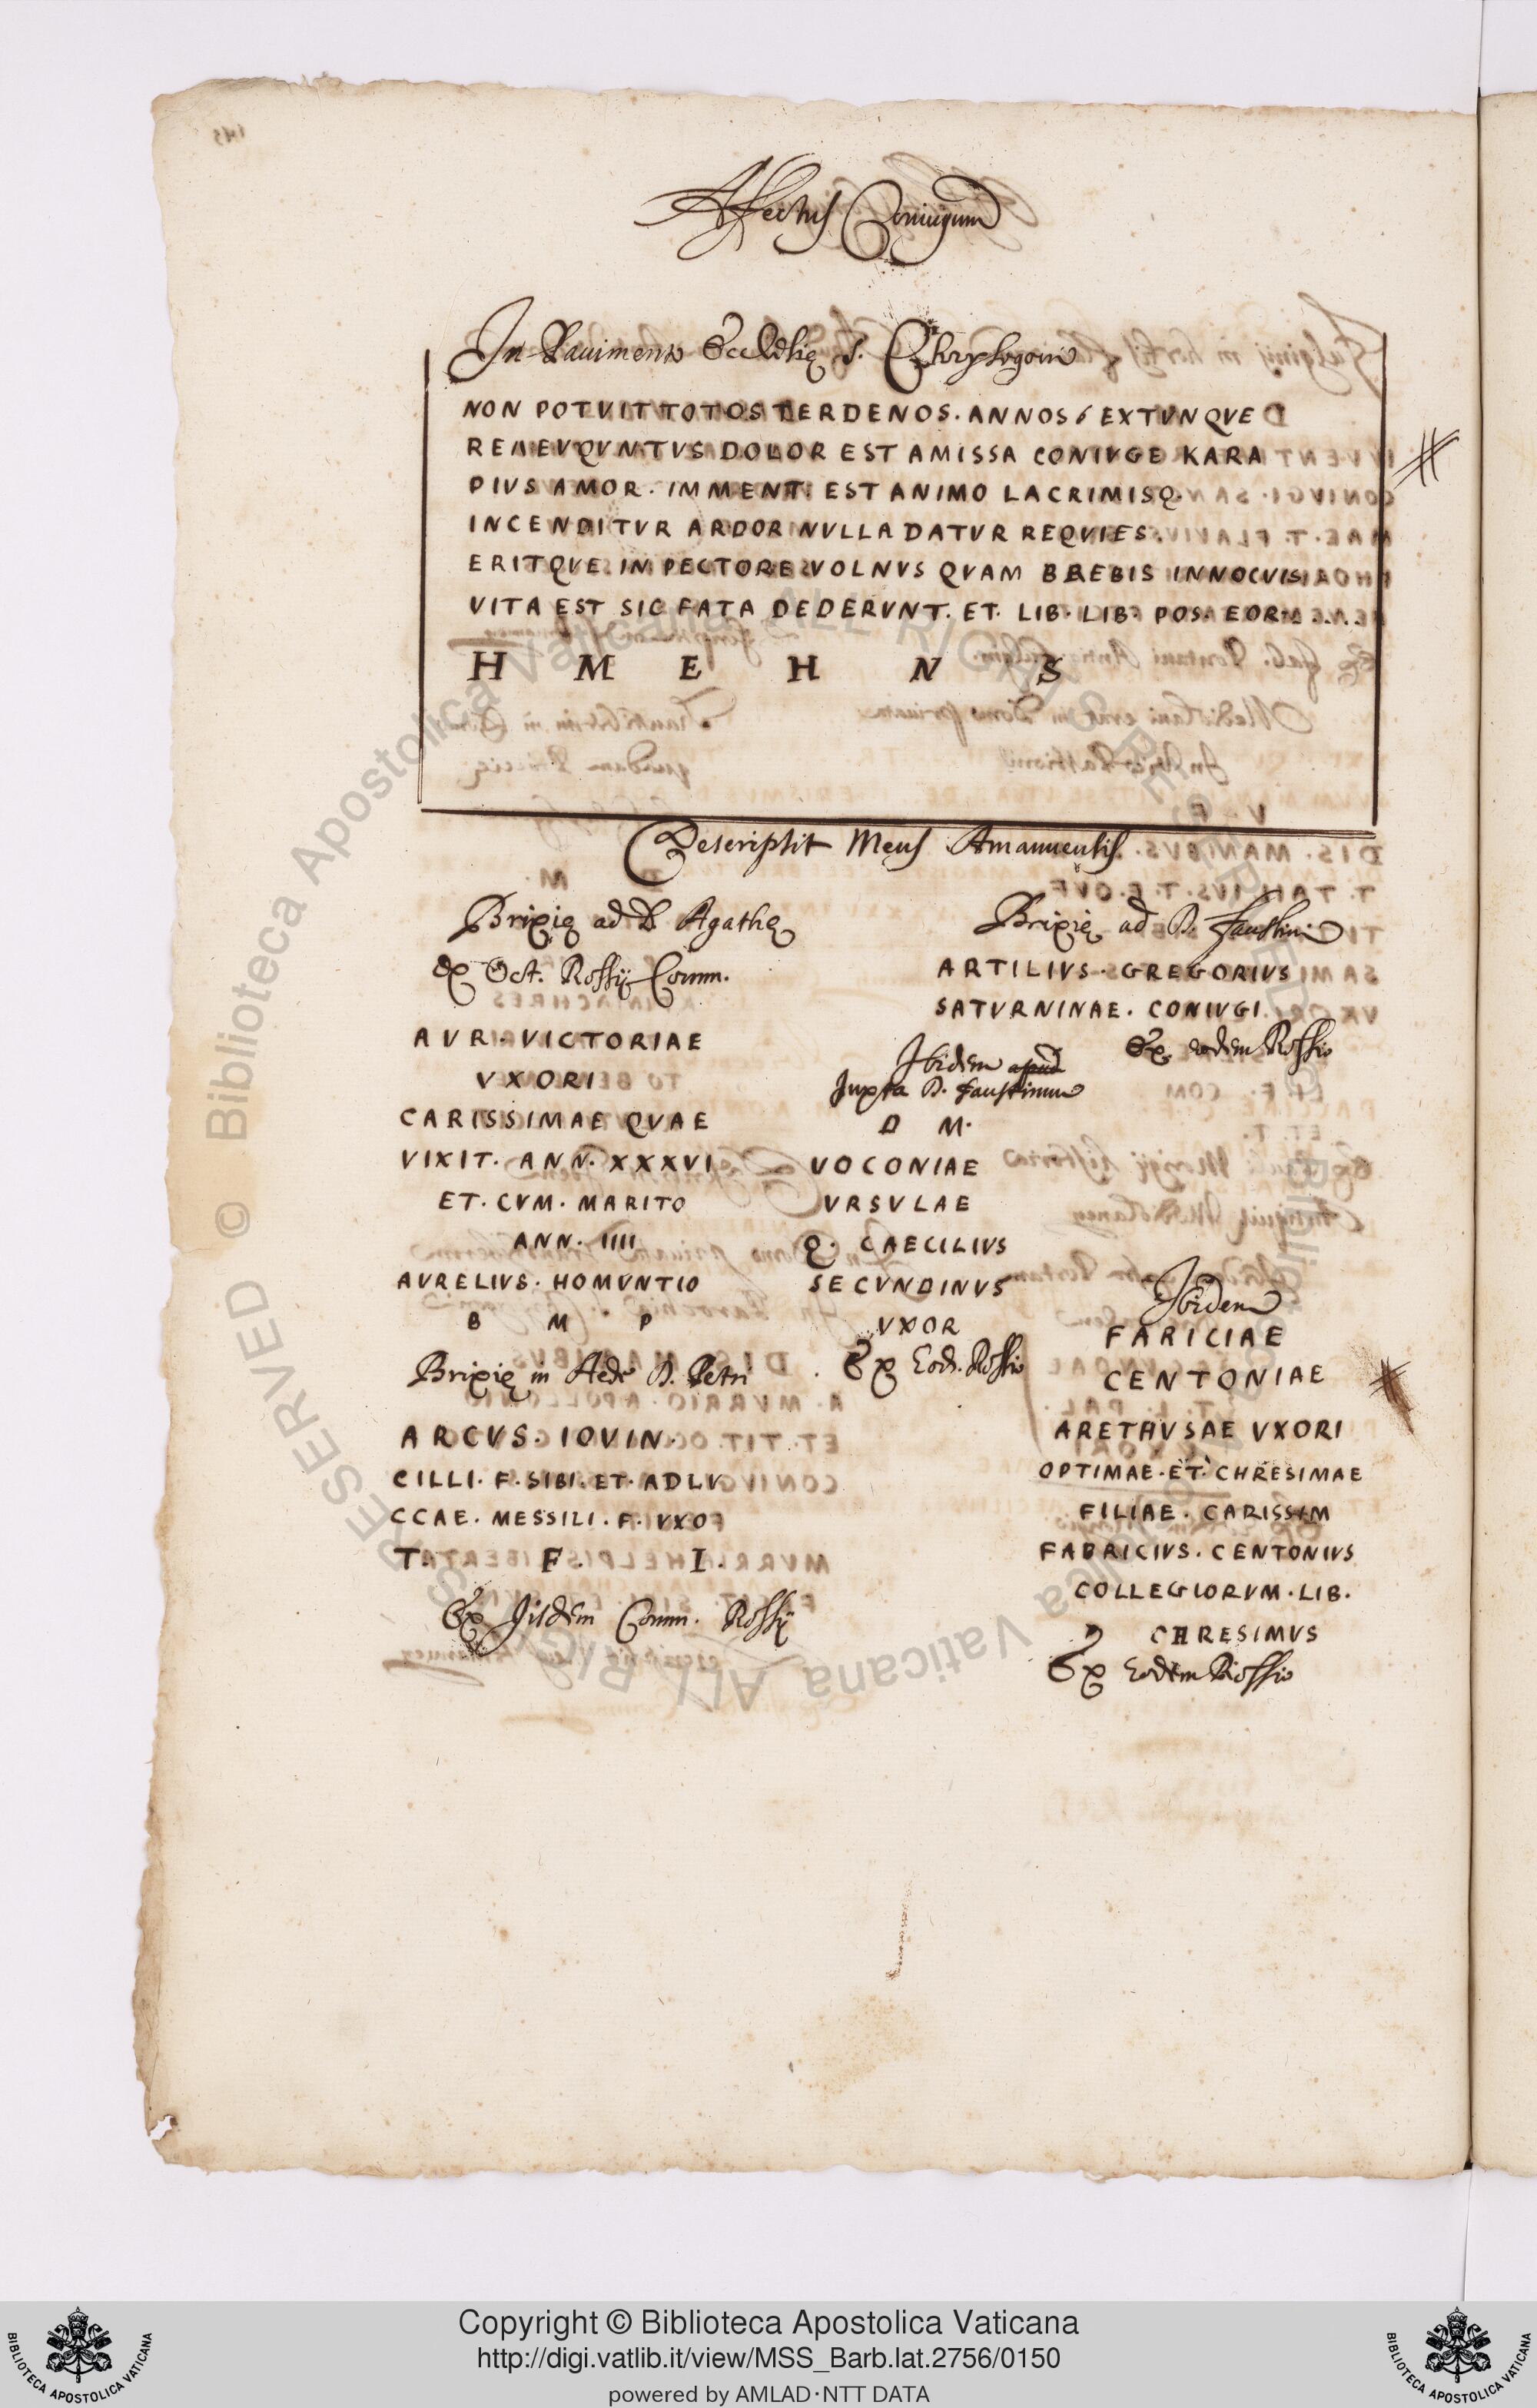 Affectus Coniugum
In Pauimento Ecclesię S. Chrysogoni
NON POTVIT TOTOS TERDENOS. ANNOS EXTVNQVE
DOLOR EST AMISSA CONIVGE KARA
PIVS AMOR. IMMENT. EST ANIMO LACRIMISQ.
INCENDITVR ARDOR NVLLA DATVR REQVIES.
ERITQVE. IN PECTORE VOLNVS QVAM BREBIS INNOCVIS
VITA EST SIC FATA DEDERVNT. ET. LIB. LIB. POS. EOR.
H M E H N S
Descripsit Meus Amanuensis
Brixię ad D. Agathę
ex Oct. Rossij Comm.
AVR. VICTORIAE
VXORI
CARISSIMAE QVAE
VIXIT. ANN. XXXVI
ET. CVM. MARITO
ANN. IIII
AVRELIVS. HOMVNTIO
B M P
Brixię in Aede D. Petri
ARCVS. IOVIN.
CILLI. F. SIBI. ET. ADLV
CCAE. MESSILI. F. VXO
T. F. I.
Ex Iisdem Comm. Rossij
Brixię ad D. Faustini
ARTILIVS. GREGORIVS
SATVRNINAE. CONIVGI
Ex eodem Rossio
Ibidem apud
Juxta D. Faustinum
D M.
VOCONIAE
VRSVLAE
Q. CAECILIVS
SECVNDINVS
VXOR
Ex Eod. Rossio
Ibidem
FARICIAE
CENTONIAE
ARETHVSAE VXORI
OPTIMAE. ET. CHRESIMAE
FILIAE. CARISSIM
FABRICIVS. CENTONIVS
COLLEGIORVM. LIB.
CHRESIMVS
Ex Eodem Rossio
© Biblioteca Apostolica Vaticana ALL RIGHTS RESERVED
© Biblioteca Apostolica Vaticana ALL RIGHTS RESERVED
Copyright © Biblioteca Apostolica Vaticana
http://digi.vatlib.it/view/MSS_Barb.lat.2756/0150
powered by AMLAD·NTT DATA
BIBLIOTECA APOSTOLICA VATICANA
BIBLIOTECA APOSTOLICA VATICANA